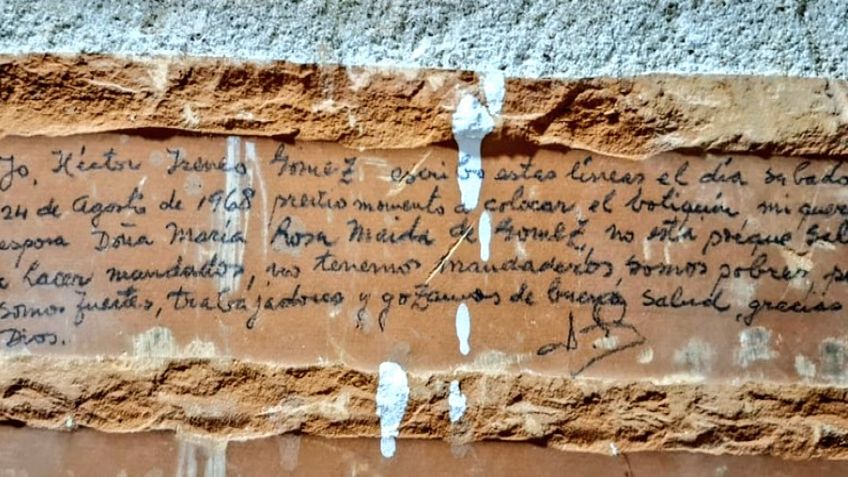 Yo, Héctor Ireneo Gomez escribo estas líneas el día sabado
24 de Agosto de 1968 previo momento a colocar el botiquín mi quer
esposa Doña María Rosa Maida de Gomez, no está porque sal
a hacer mandados, no tenemos mandaderos, somos pobres pe
somos fuertes, trabajadores y gozamos de buena salud, gracias
Dios.